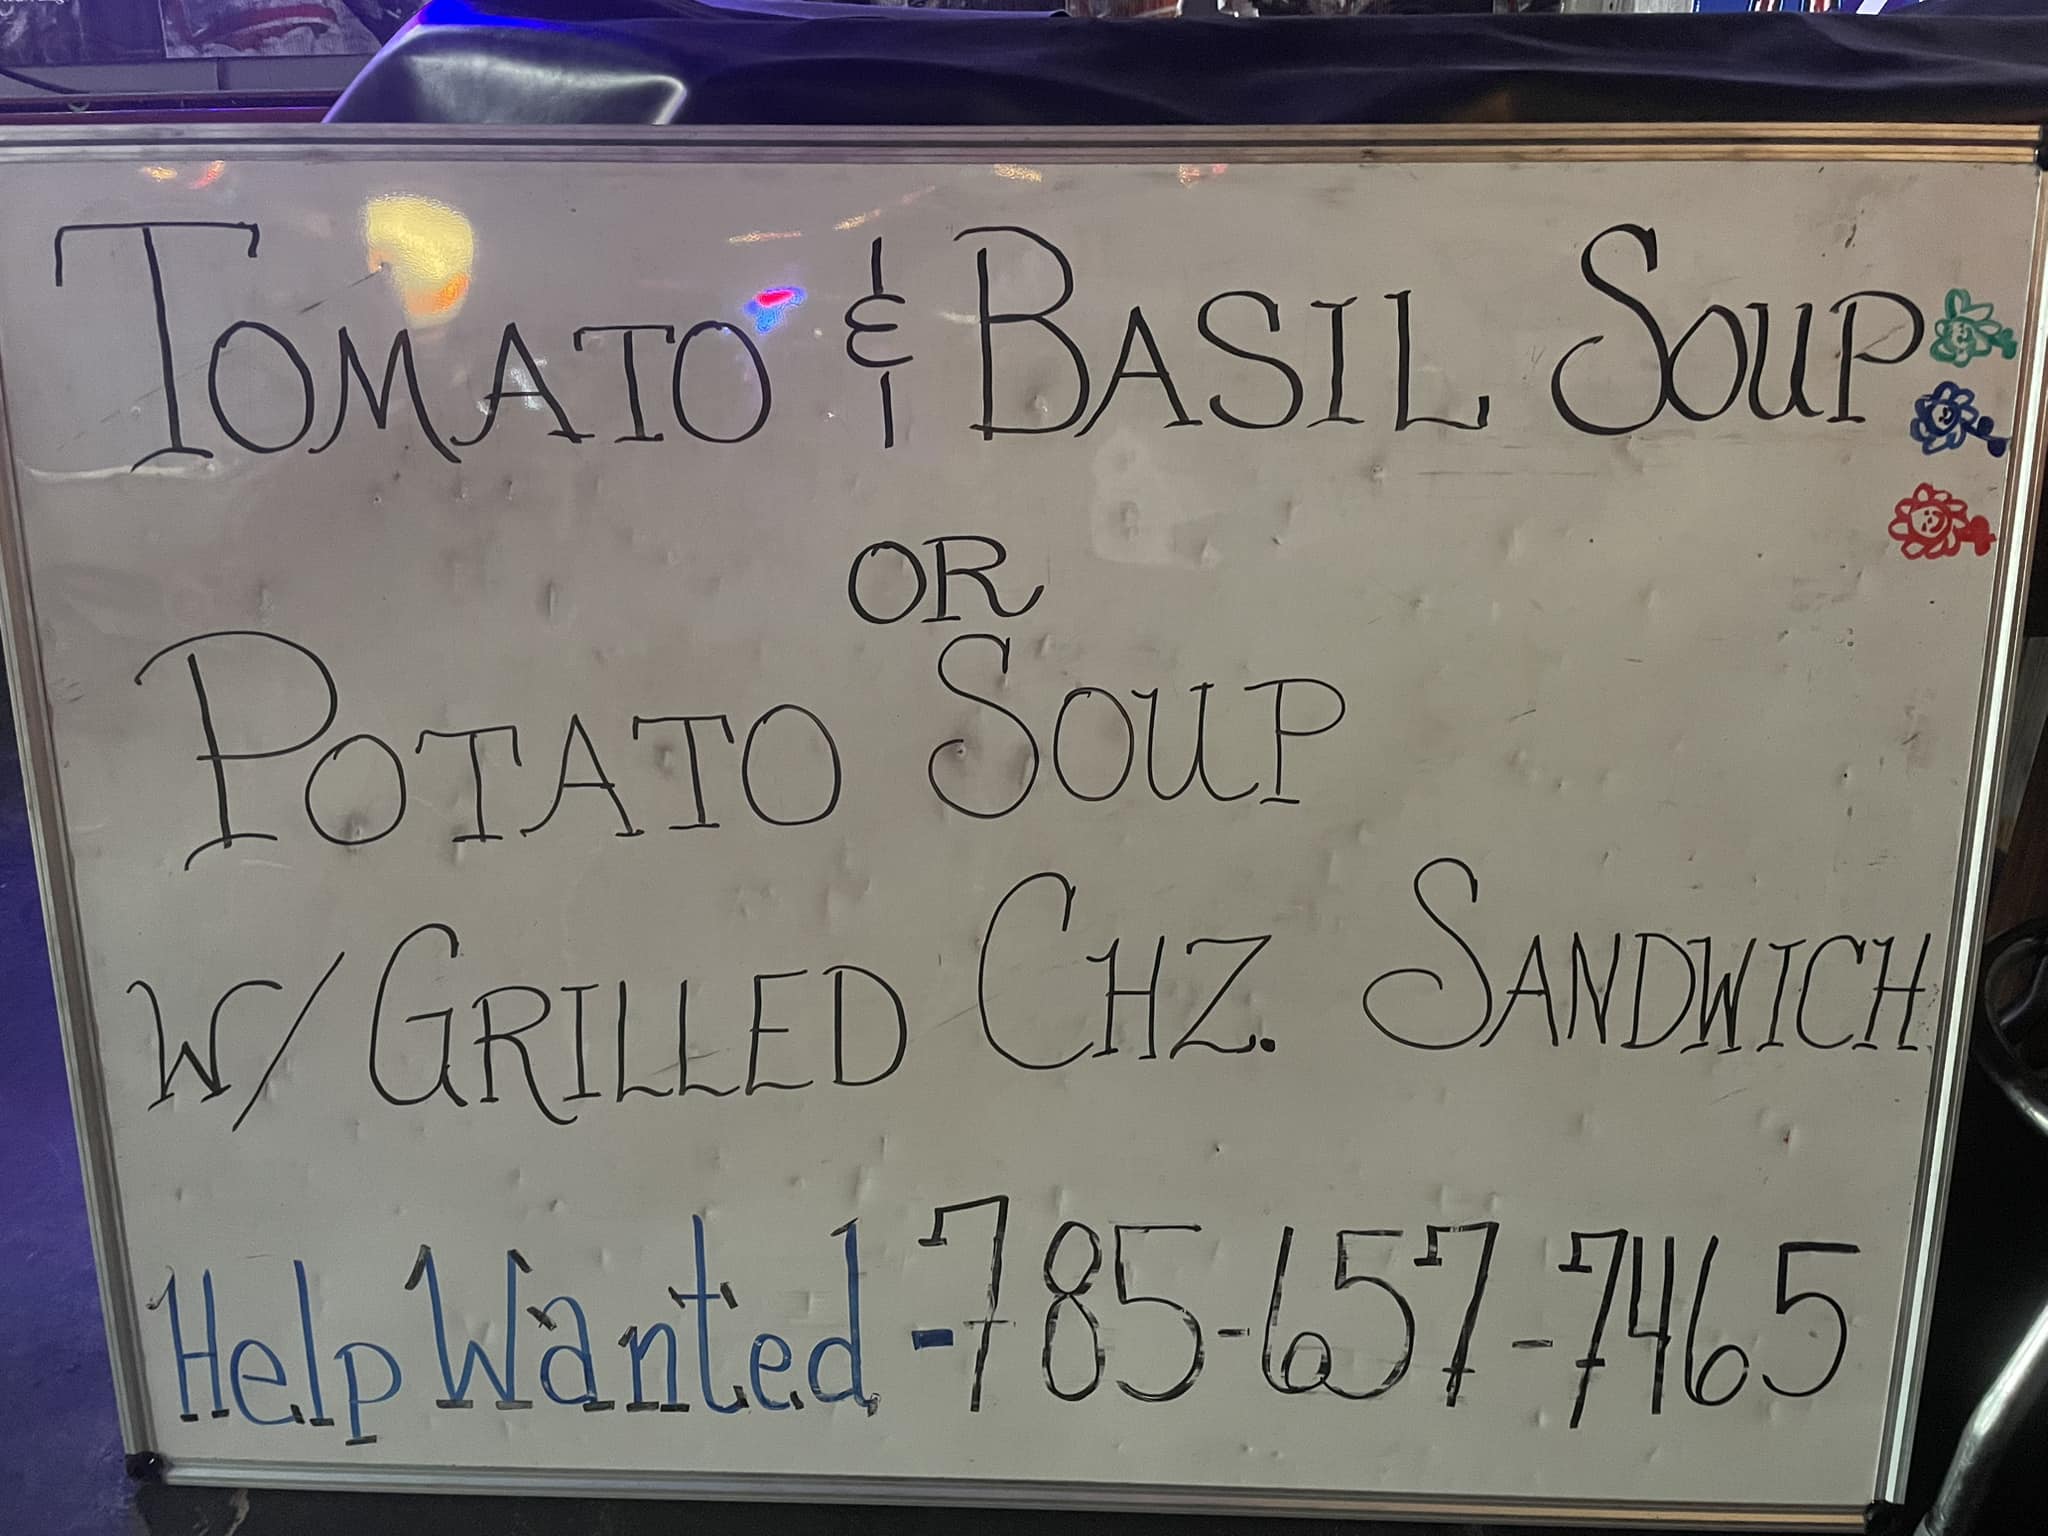 TOMATO & BASIL SOUP
OR
POTATO SOUP
W/ GRILLED CHZ. SANDWICH
Help Wanted - 785-657-7465